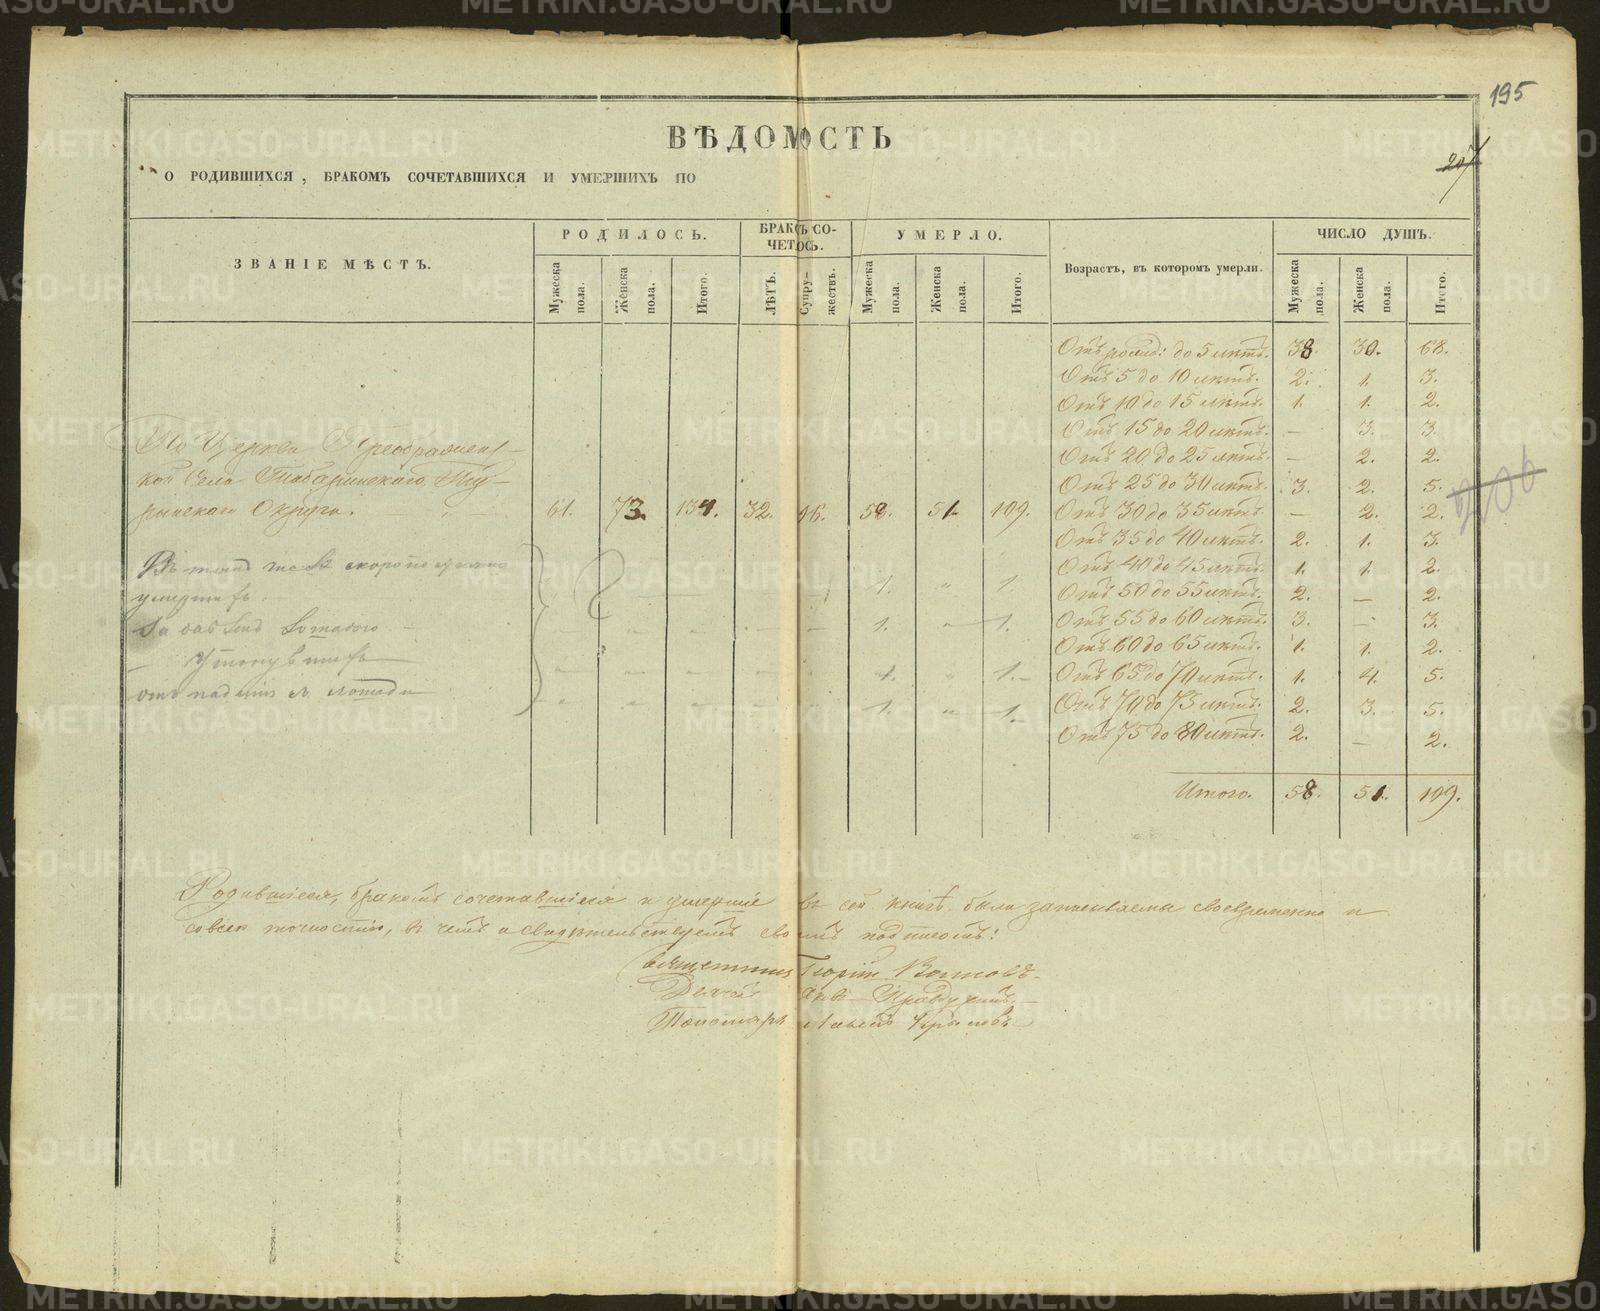 195
ВѢДОМОСТЬ
207
О РОДИВШИХСЯ, БРАКОМЪ СОЧЕТАВШИХСЯ И УМЕРШИХЪ ПО
ЗВАНІЕ МѢСТЪ.
РОДИЛОСЬ.
БРАКЪ СО-
ЧЕТОСЬ.
УМЕРЛО.
Возрастъ, въ которомъ умерли.
ЧИСЛО ДУШЪ.
Мужеска пола.
Женска пола.
Итого.
ЛѢТЪ.
Супру-
жествъ.
Мужеска пола.
Женска пола.
Итого.
Мужеска пола.
Женска пола.
Итого.
Отъ рожд: до 5 лѣтъ. 38. 30. 68.
Отъ 5 до 10 лѣтъ. 2. 1. 3.
Отъ 10 до 15 лѣтъ. 1. 1. 2.
Отъ 15 до 20 лѣтъ. — 3. 3.
Отъ 20 до 25 лѣтъ. — 2. 2.
Отъ 25 до 30 лѣтъ. 3. 2. 5.
Отъ 30 до 35 лѣтъ. — 2. 2.
Отъ 35 до 40 лѣтъ. 2. 1. 3.
Отъ 40 до 45 лѣтъ. 1. 1. 2.
Отъ 50 до 55 лѣтъ. 2. — 2.
Отъ 55 до 60 лѣтъ. 3. — 3.
Отъ 60 до 65 лѣтъ. 1. 1. 2.
Отъ 65 до 70 лѣтъ. 1. 4. 5.
Отъ 70 до 75 лѣтъ. 2. 3. 5.
Отъ 75 до 80 лѣтъ. 2. — 2.
Итого. 58. 51. 109.
206
По Церкви Преображен-
кой Села Табаринскаго, Ту-
ринскаго Округа. 61. 73. 134. 32. 16. 58. 51. 109.
Въ томъ числѣ скоропостижно
умершихъ 1. " 1.
1. " 1.
Утонувшихъ 1. " 1.
отъ паденія съ лошади 1. " 1.
Родившіеся, бракомъ сочетавшіеся и умершіе въ сей книгѣ были записываемы своевременно и
со всею точностію, въ чемъ и свидѣтельствуемъ своимъ подписомъ:
Священникъ Георгій
Дьячекъ
Пономарь
METRIKI.GASO-URAL.RU